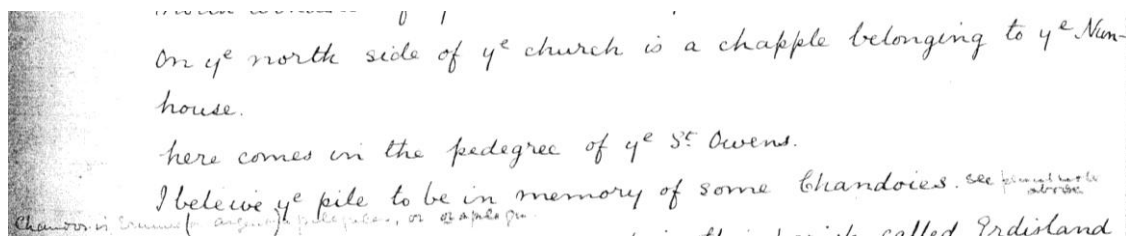 On yᵉ north side of yᵉ church is a chapple belonging to yᵉ Nun-
house.
here comes in the pedegree of yᵉ Sᵗ Owens.
I beleive yᵉ pile to be in memory of some Chandoies. see
above
called Erdisland